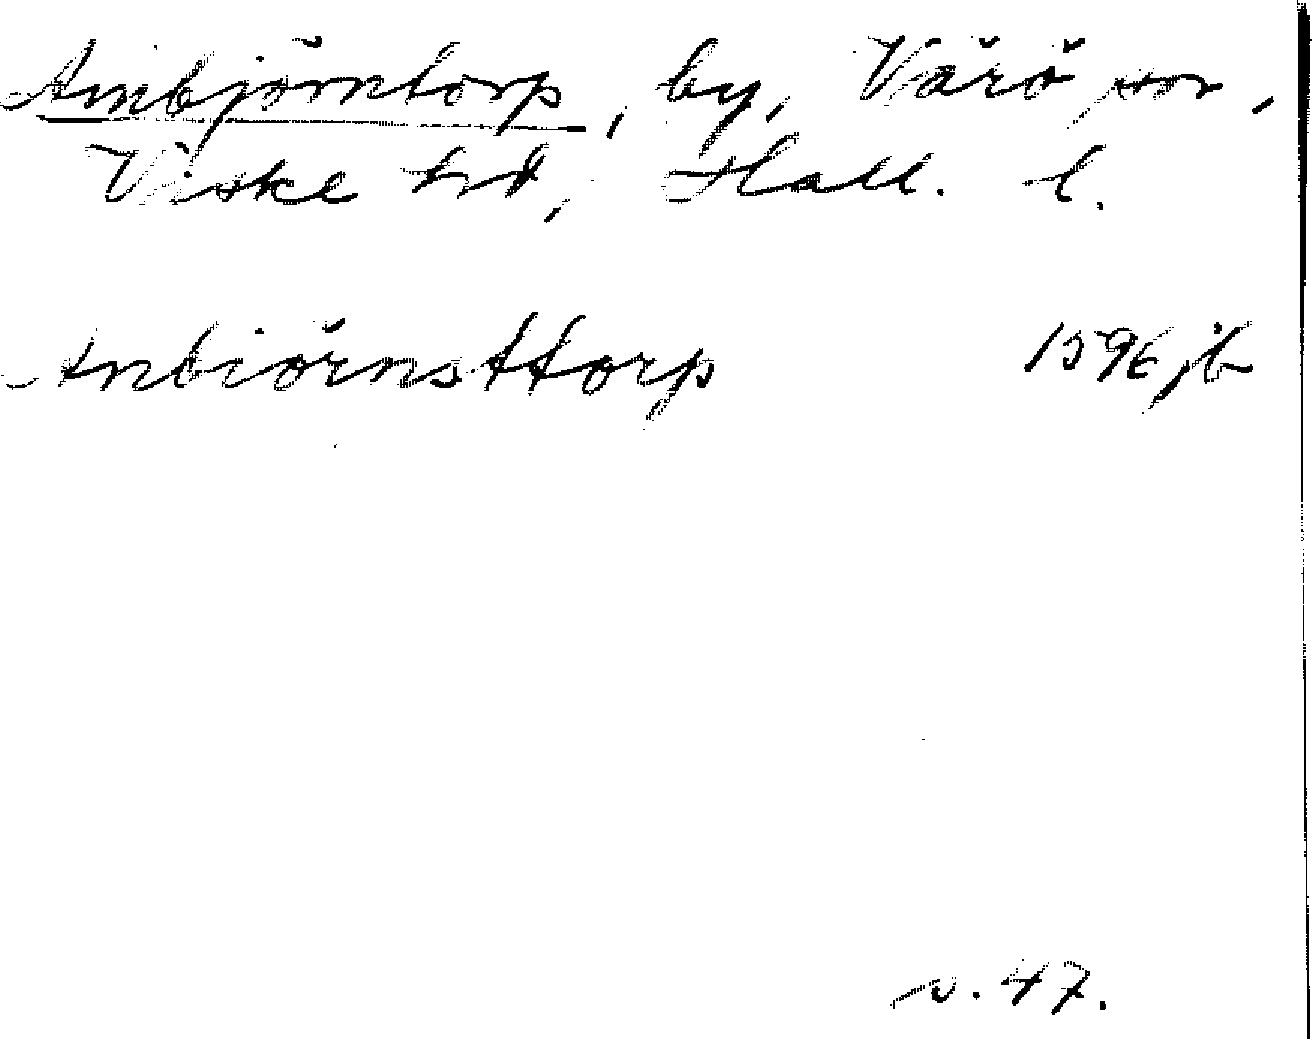 Ambjörntorp, by, Värö sn,
Viske hd, Hall. l.
Anbiörnsttorp 1596 jb
s. 47.